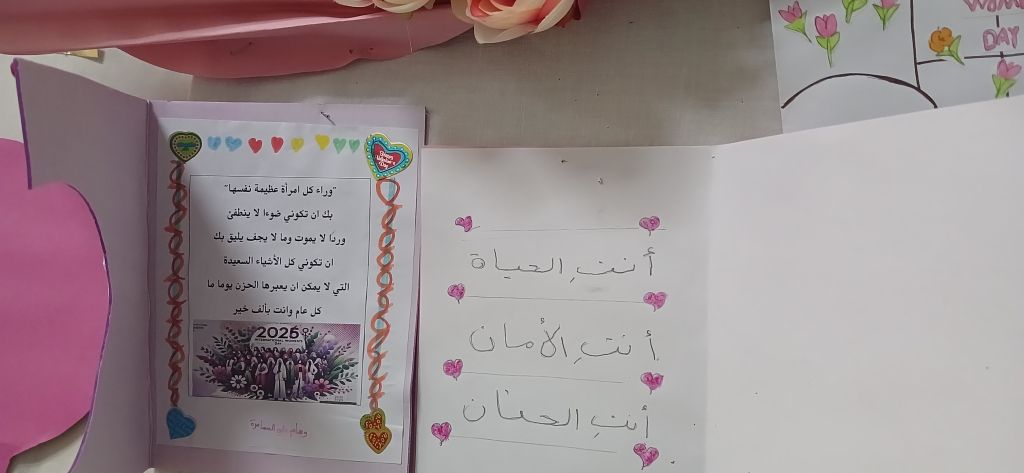 "وراء كل امرأة عظيمة نفسها"
بك ان تكوني ضوءا لا ينطفئ
وردا لا يموت وما لا يجف يليق بك
ان تكوني كل الأشياء السعيدة
التي لا يمكن ان يعبرها الحزن يوما ما
كل عام وانت بألف خير
2026
INTERNATIONAL WOMEN'S
DAY
وسام
أنتِ الحياة
أنتِ الأمان
أنتِ الحنان
DAY